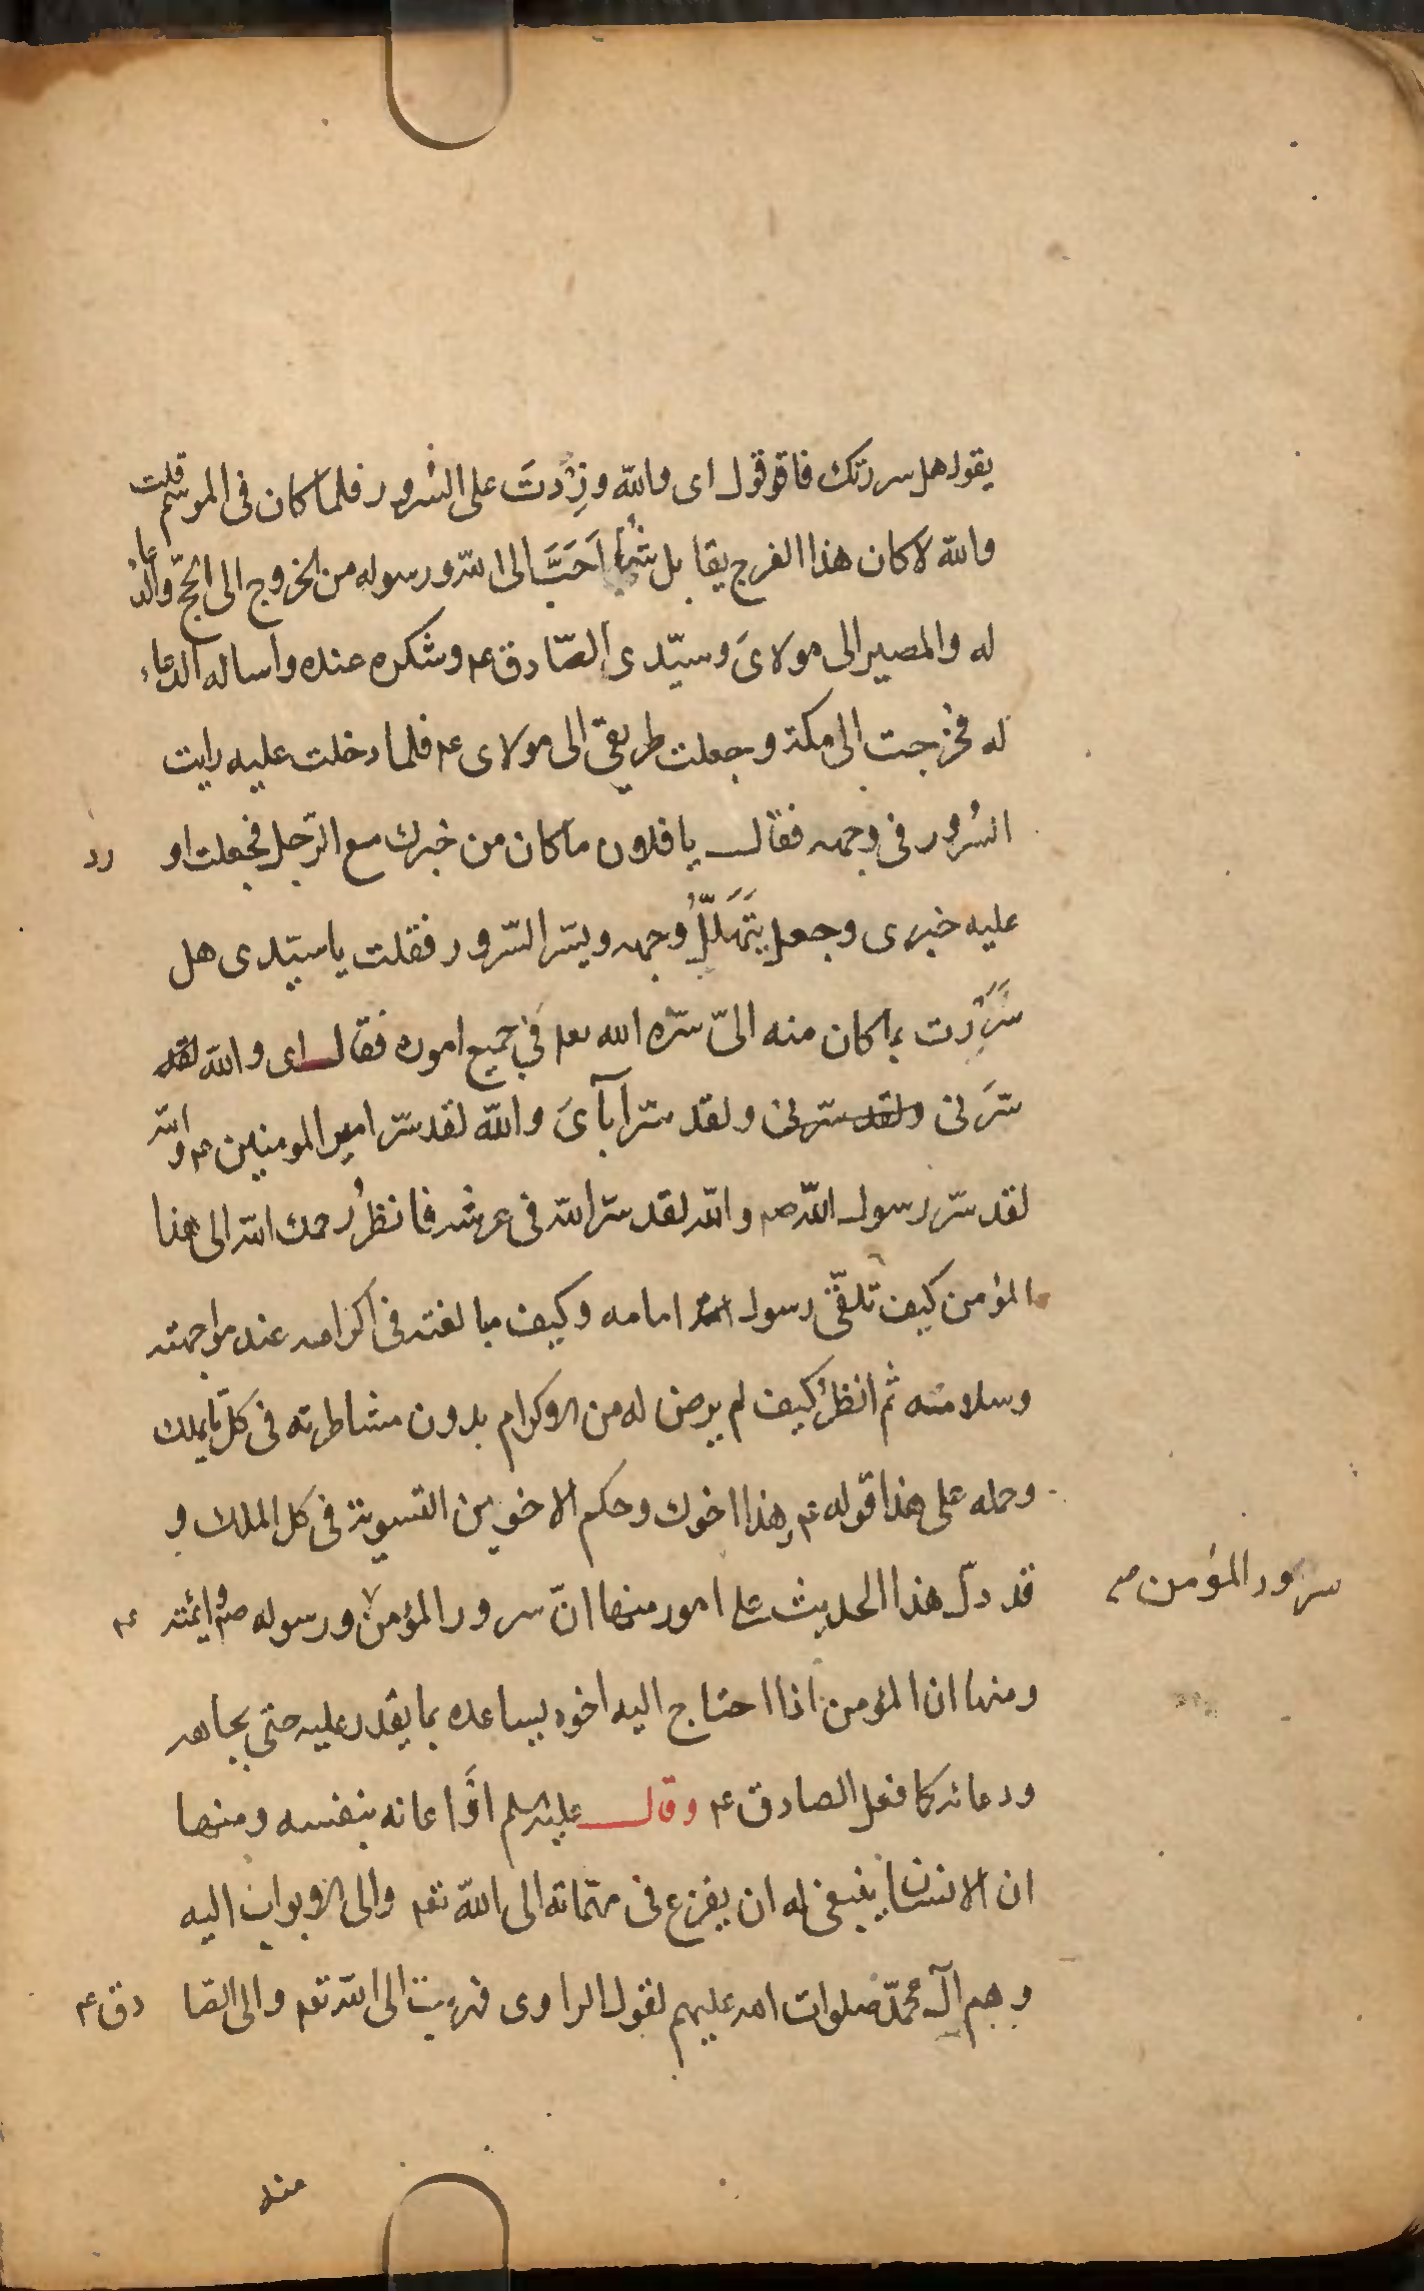 يقول هل سررتك فاقول اى والله وزِدْتَ على السُرور فلما كان فى الموسم قلت
والله لا كان هذا الفرج يقابل بشئ اَحَبَّ الى الله ورسوله من الخروج الى الحجّ والدعاء
له والمصير الى مولاىَ وسيّدى الصّادق ع٨ وشكره عنده واساله الدعاء
له فخرجت الى مكة وجعلت طريقى الى مولاى ع٨ فلما دخلت عليه رايت
السُرور فى وجهه فقال يا فلان ما كان من خبرك مع الرّجل فجعلت او رد
عليه خبرى وجعل يَتَهَلّلُ وجهه ويسر السّرور فقلت يا سيّدى هل
سَرَرْت بما كان منه الىّ سرّه الله تعم فى جميع اموره فقال اى والله لقد
سَرّنى ولقد سرنى ولقد سرّ آبائىَ والله لقد سرّ امير المومنين ع٨ والله
لقد سرّ رسول الله ص٨ والله لقد سرّ الله فى عرشه فانظرْ رحمك الله الى هذا
المؤمن كيف تلقّى رسول امامه وكيف مبالغته فى اكرامه عند مواجهته
وسلامته ثم انظرْ كيف لم يرض له من الاكرام بدون مشاطرته فى كلّ ما يملك
وحمله على هذا قوله ع٨ هذا اخوك وحكم الاخوين التسوية فى كل الملك و
قد دلّ هذا الحديث على امور منها انّ سرور المؤمن ورسوله ص٨ وائمته ع٨
سرور المؤمن ص
ومنها ان المؤمن اذا احتاج اليه اخوه يساعده بما يقدر عليه حتى بجاهه
ودعائه كما فعل الصادق ع٨ وقال عليه السلم اوَّ اعانه بنفسه ومنها
ان الانسان ينبغى له ان يفزع فى مهمّاته الى الله تعم والى الابواب اليه
وهم آل محمّد صلوات الله عليهم لقول الراوى فهربت الى الله تعم والى الصادق ع٨
عند